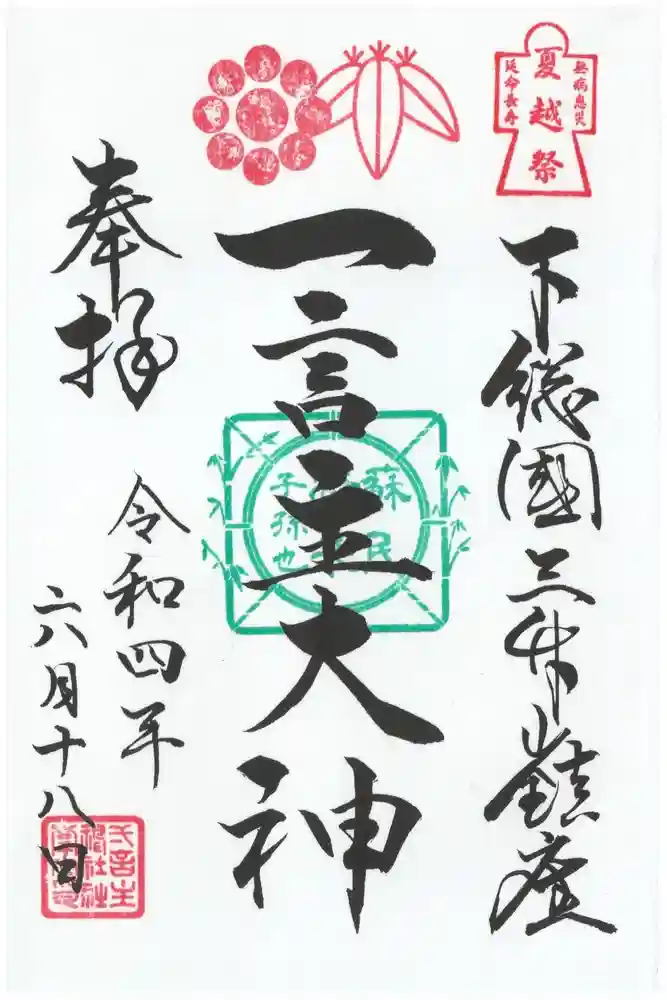 無病息災
夏越祭
延命長寿
下総國三竹山鎮座
一言主大神
蘇民
子孫也
奉拝
令和四年
六月十八日